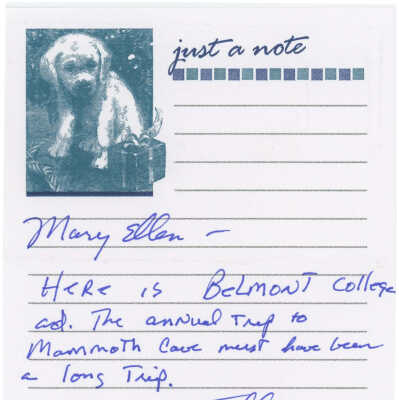 just a note
Mary Ellen —
HERE is BELMONT College
ad. The annual Trip to
Mammoth Cave must have been
a long Trip.